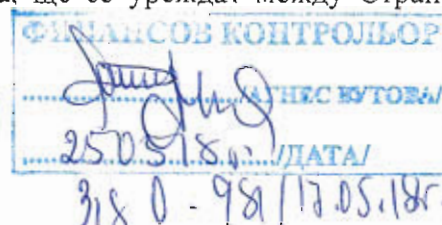 ще се уреждат между Стран
ФИНАНСОВ КОНТРОЛЬОР
/АГНЕС ВУТОВА/
25 05 18г. /ДАТА/
- 981/17.05.18г.